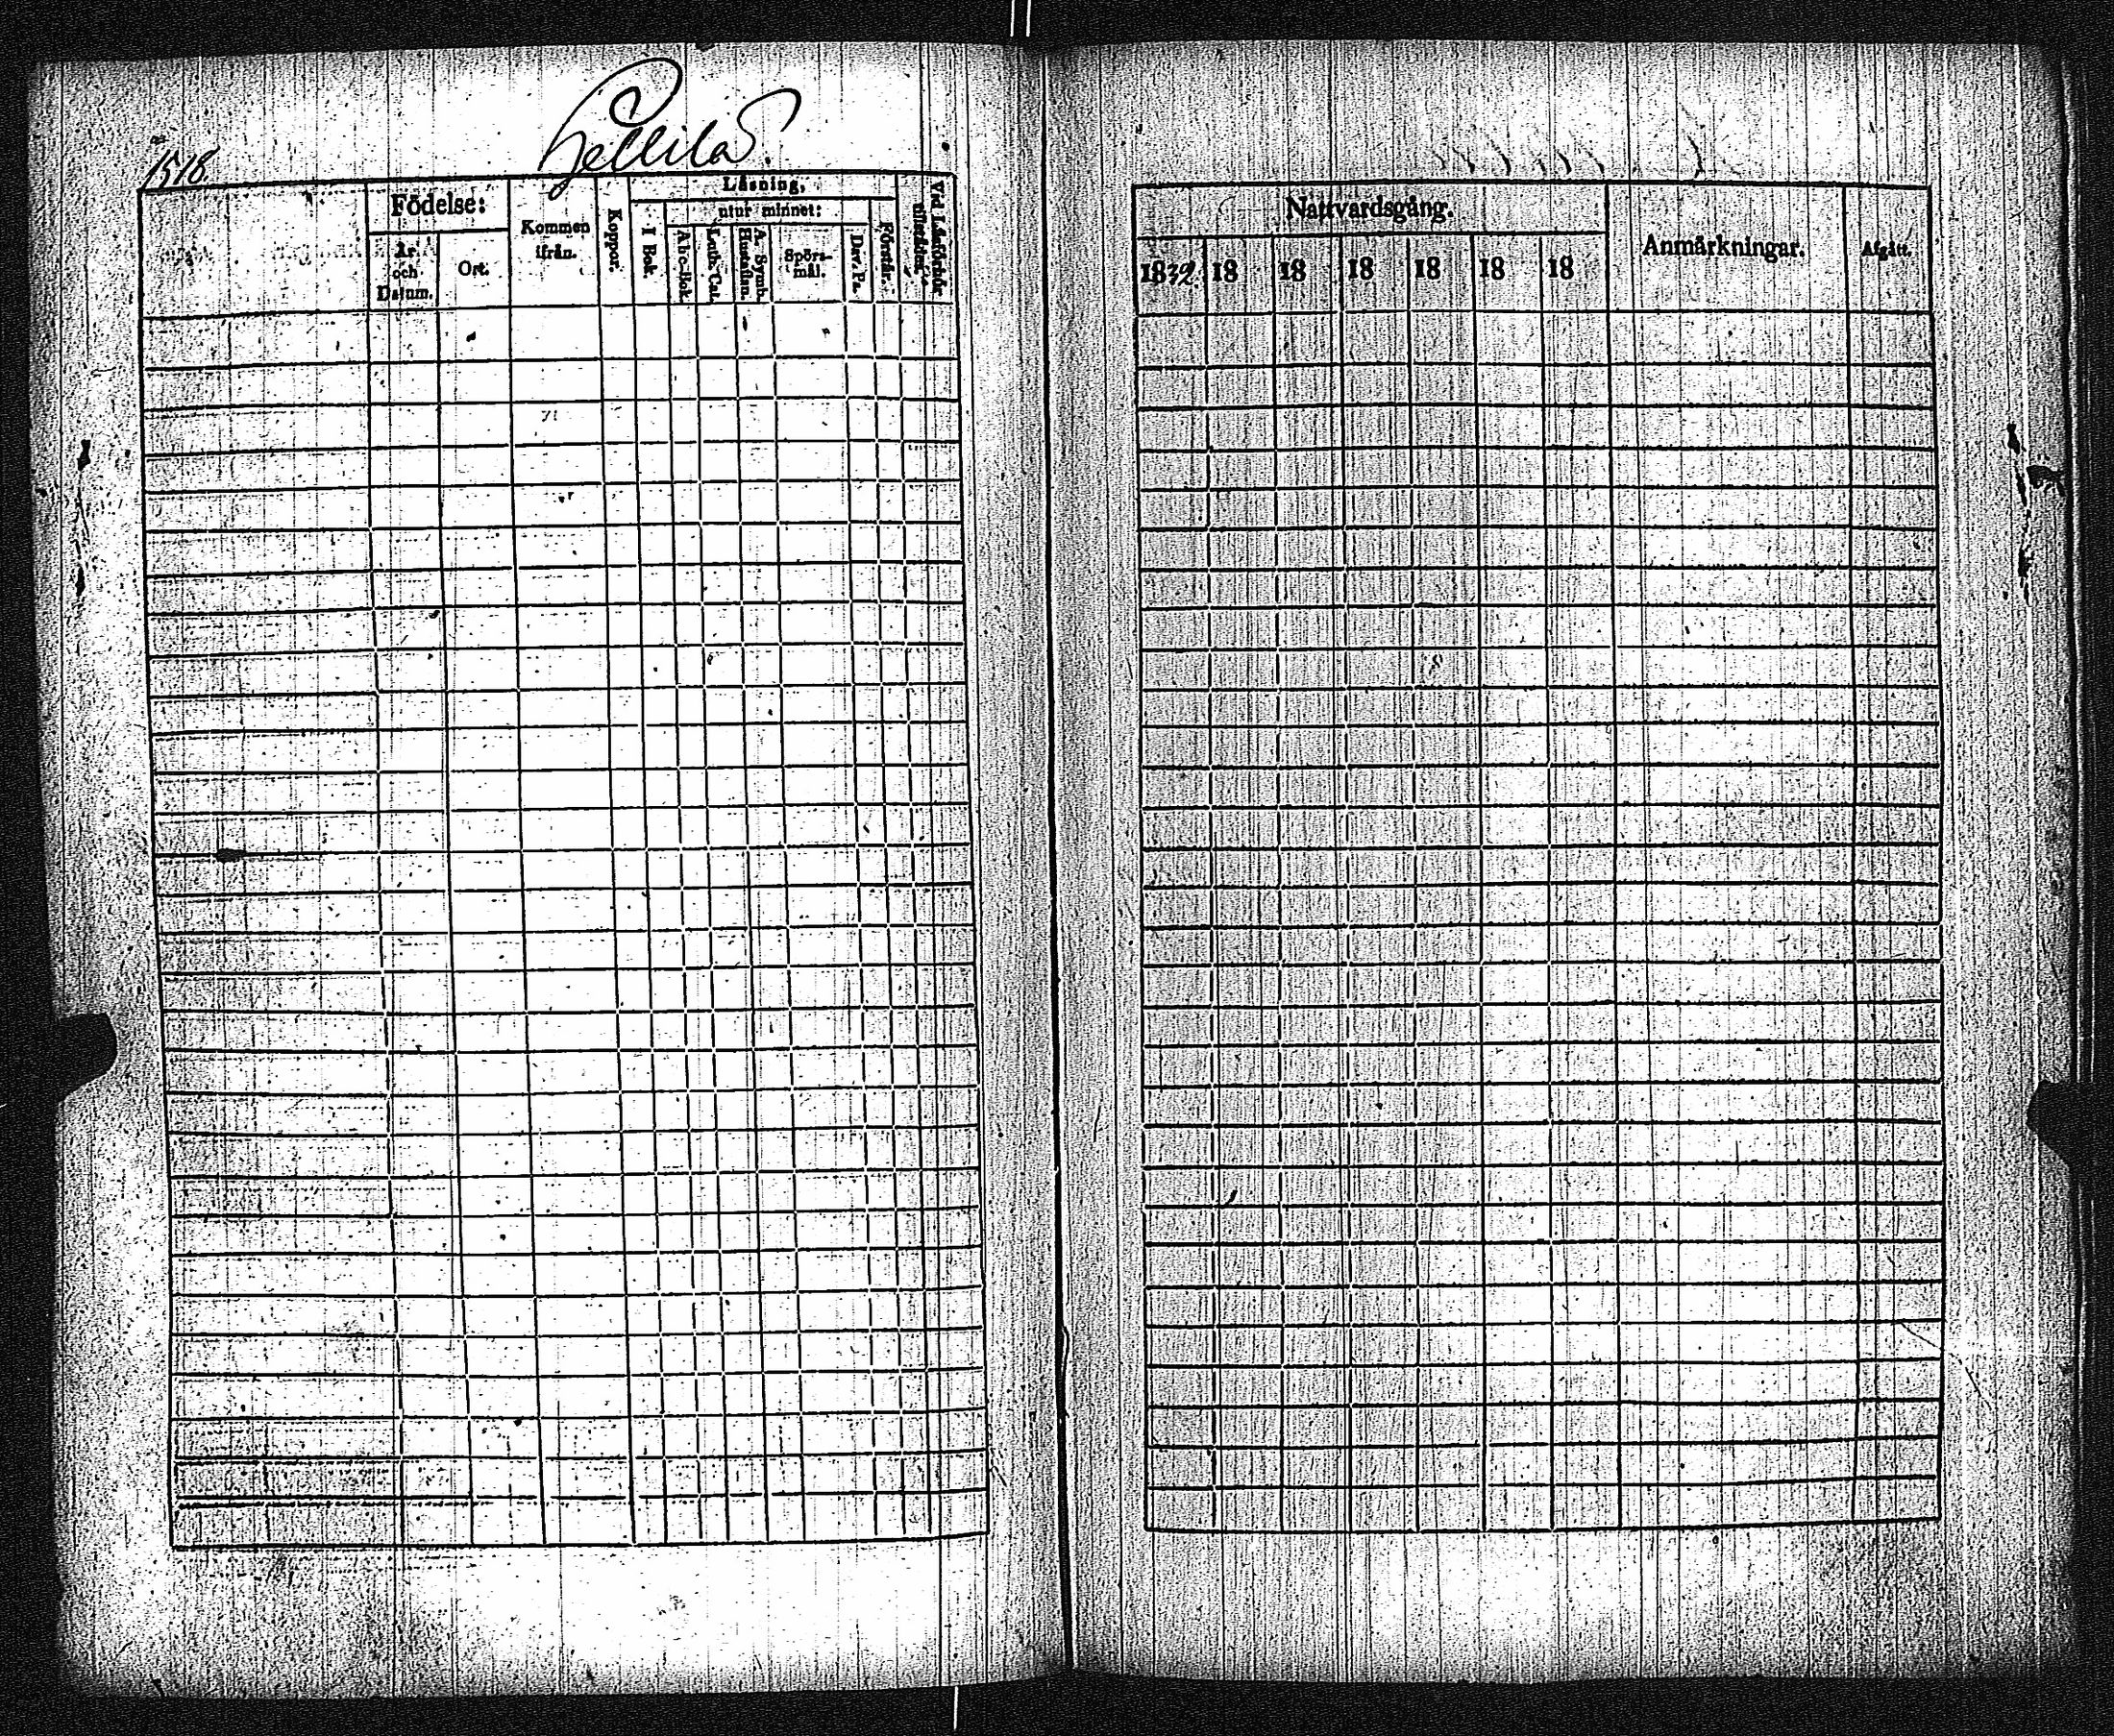 1518
Födelse:
År och Datum.
Ort.
Kommen ifrån.
Koppor.
Läsning,
I Bok.
utur minnet:
A b c-Bok.
Luth. Cat.
A. Symb. Hustaflan.
Spörs-mål.
Dav. Ps.
Förstår.
Vid Läsförhör tillstädes.
Nattvardsgång.
1832. 18 18 18 18 18 18
Anmärkningar.
Afgått.